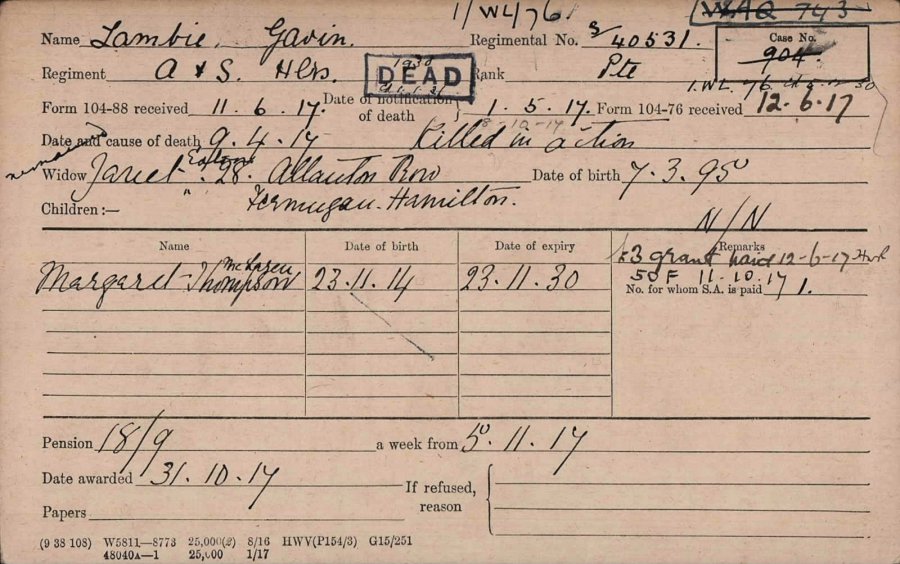 1/WL/76/ WAQ 743
Name Lambie, Gavin. Regimental No. S/40531. Case No. 904.
Regiment A & S. Hrs. 1938 DEAD Rank Pte
1.WL. 76
Form 104-88 received 11.6.17. Date of notification of death 1.5.17. Form 104-76 received 12.6.17
8-10-17
Date and cause of death 9.4.17 Killed in action
remarried
Widow Janet 28. Allanton Row Date of birth 7.3.95
Children:— " Ferniegair. Hamilton.
N/N
Name Date of birth Date of expiry Remarks
£3 grant paid 12-6-17
Margaret McLaren Thompson 23.11.14 23.11.30 50 F 11.10.17
No. for whom S.A. is paid 1.
Pension 18/9 a week from 5.11.17
Date awarded 31.10.17 If refused, reason
Papers
(9 38 108) W5811—8773 25,000(2) 8/16 HWV(P154/3) G15/251
48040A—1 25,000 1/17